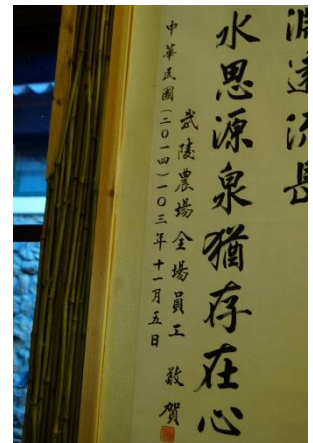 淵遠流長
水思源泉猶存在心
武陵農場全場員工 敬賀
中華民國(二〇一四)一〇三年十一月五日